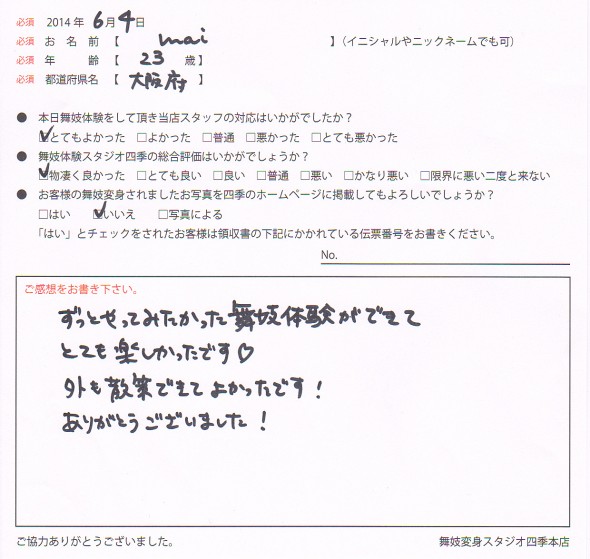 必須 2014年 6月 4日
必須 お名前【 mai 】(イニシャルやニックネームでも可)
必須 年齢【 23 歳】
必須 都道府県名【 大阪府 】
● 本日舞妓体験をして頂き当店スタッフの対応はいかがでしたか?
☑とてもよかった □よかった □普通 □悪かった □とても悪かった
● 舞妓体験スタジオ四季の総合評価はいかがでしょうか?
☑物凄く良かった □とても良い □良い □普通 □悪い □かなり悪い □限界に悪い二度と来ない
● お客様の舞妓変身されましたお写真を四季のホームページに掲載してもよろしいでしょうか?
□はい ☑いいえ □写真による
「はい」とチェックをされたお客様は領収書の下記にかかれている伝票番号をお書きください。
No.
ご感想をお書き下さい。
ずっとやってみたかった舞妓体験ができて
とても楽しかったです♡
外も散策できてよかったです!
ありがとうございました!
ご協力ありがとうございました。 舞妓変身スタジオ四季本店